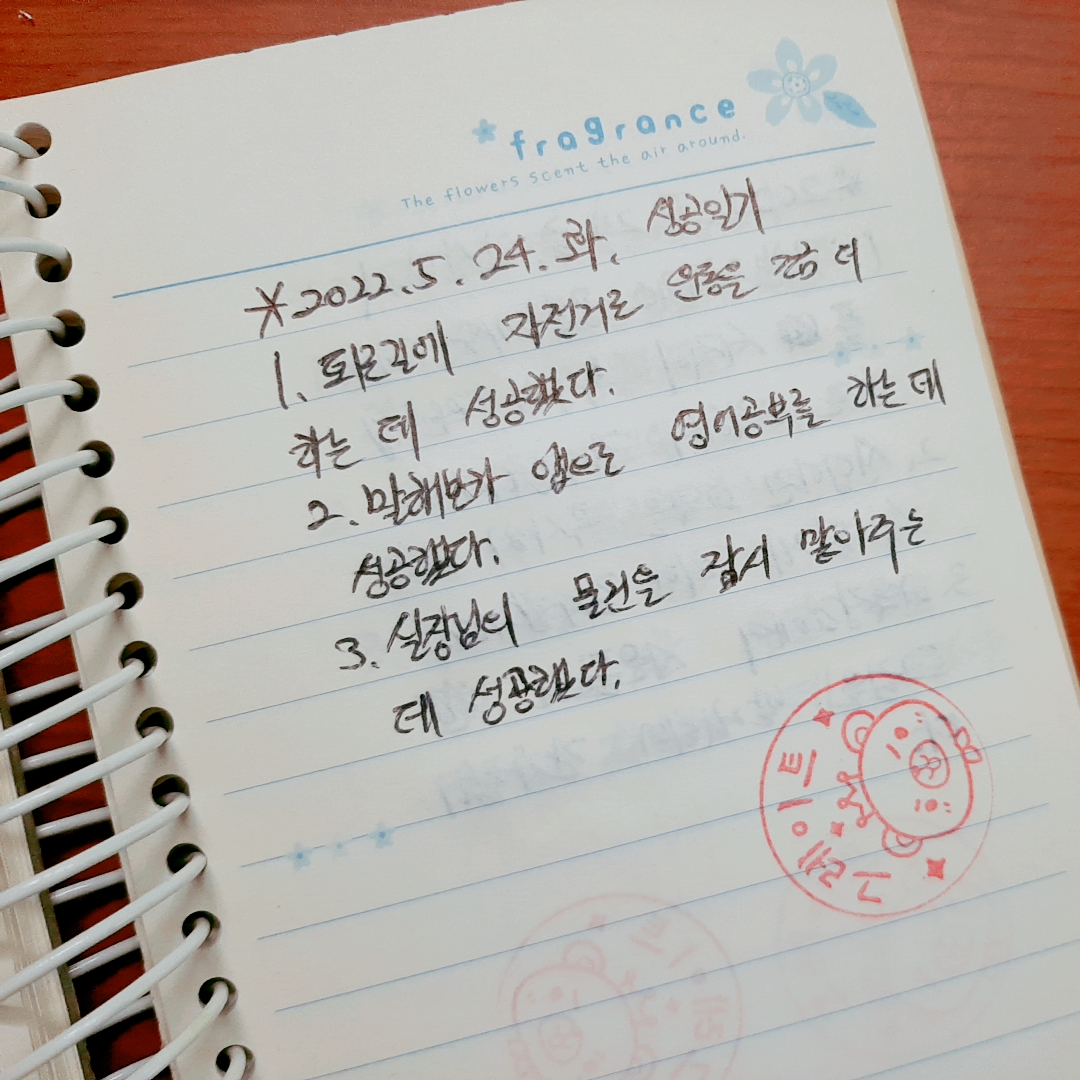 fragrance
The flowers scent the air around.
* 2022. 5. 24. 화. 성공일기
1. 퇴근길에 자전거로 운동을 조금 더
하는 데 성공했다.
2. 말해보카 앱으로 영어공부를 하는데
성공했다.
3. 실장님의 물건을 잠시 맡아주는
데 성공했다.
그레이트